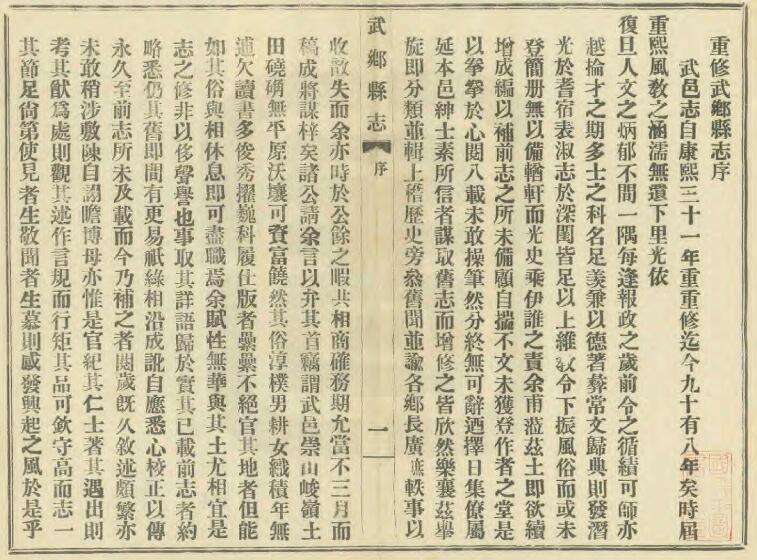 重修武鄉縣志序
武邑志自康熙三十一年重修迄今九十有八年矣時屆
重熙風敎之涵濡無遺下里光依
復旦人文之炳郁不間一隅每逢報政之歲前令之循績可師亦
越掄才之期多士之科名足羨兼以德著彝常文歸典則發潛
光於耆宿表淑志於深閨皆足以上維敎令下振風俗而或未
登簡册無以備輶軒而光史乘伊誰之責余甫蒞茲土即欲續
增成編以補前志之所未備顧自揣不文未獲登作者之堂是
以拳拳於心閱八載未敢操筆然分終無可辭迺擇日集僚屬
延本邑紳士素所信者謀取舊志而增修之皆欣然樂襄茲舉
旋即分類並輯上稽歷史旁叅舊聞並諭各鄉長廣摭軼事以
武鄉縣志
序
一
收散失而余亦時於公餘之暇共相商確務期允當不三月而
稿成將謀梓矣諸公請余言以弁其首竊謂武邑崇山峻嶺土
田磽确無平原沃壤可資富饒然其俗淳樸男耕女織積年無
逋欠讀書多俊秀擢巍科履仕版者纍纍不絕官其地者但能
如其俗與相休息即可盡職焉余賦性無華與其土尤相宜是
志之修非以侈聲譽也事取其詳語歸於實其已載前志者約
略悉仍其舊即間有更易祇緣相沿成訛自應悉心校正以傳
永久至前志所未及載而今乃補之者閱歲旣久敘述頗繁亦
未敢稍涉敷陳自詡瞻博毋亦惟是官紀其仁士著其遇出則
考其猷爲處則觀其述作言規而行矩其品可欽守高而志一
其節足尙第使見者生敬聞者生慕則感發興起之風於是乎